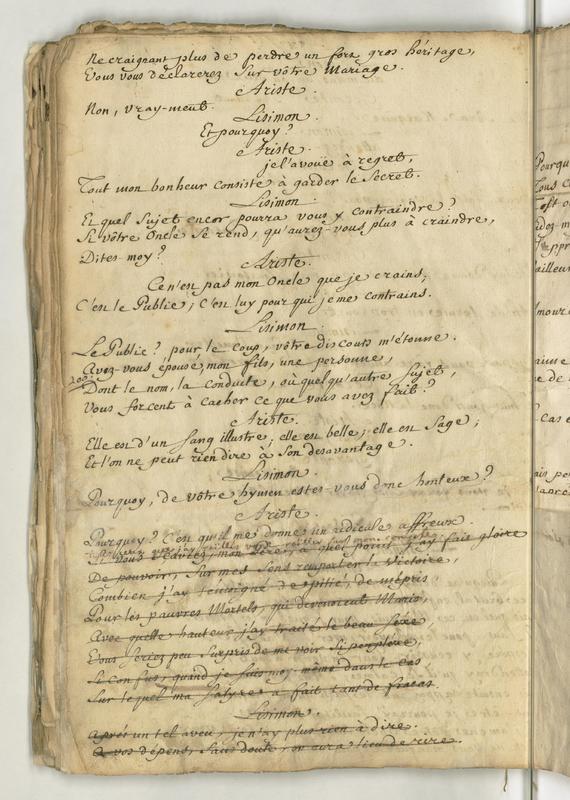 Ne craignant plus de perdre un fort gros héritage,
Vous vous déclarerez sur vôtre Mariage.
Ariste.
Non, vray-ment.
Lisimon.
Et pourquoy?
Ariste.
je l'avoue à regret,
Tout mon bonheur consiste à garder le Secret.
Lisimon.
Et quel Sujet encor pourra vous y contraindre?
Si vôtre Oncle se rend, qu'aurez-vous plus à craindre,
Dites-moy?
Ariste.
Ce n'en pas mon Oncle que je crains;
C'est le Public; C'est luy pour qui je me contrains.
Lisimon.
Le Public? pour le coup, vôtre discours m'étonne.
Avez-vous épousé, mon fils, une personne,
Dont le nom, la conduite, où quelqu'autre Sujet,
Vous forcent à cacher ce que vous avez fait?
Ariste.
Elle est d'un sang illustre; elle est belle; elle est sage;
Et l'on ne peut rien dire à Son desavantage.
Lisimon.
Pourquoy, de vôtre hymen estes-vous donc honteux?
Ariste.
Pourquoy? C'est qu'il me donne un ridicule affreux.
Vous sçavez, mon Pere, à quel point j'ay fait gloire
De pouvoir, sur mes Sens remporter la Victoire,
Combien j'ay témoigné de pitié, de mépris
Pour les pauvres Mortels, qui devenoient Maris,
Avec quelle hauteur j'ay traité le beau Sexe
Vous seriez peu Surpris de me voir Si perplexe,
Si confus, quand je suis moy-même dans le cas
Sur lequel ma Satyre a fait tant de fracas.
Lisimon.
Après un tel aveu, je n'ay plus rien à dire.
A vos dépens, Sans doute, on aura lieu de rire.